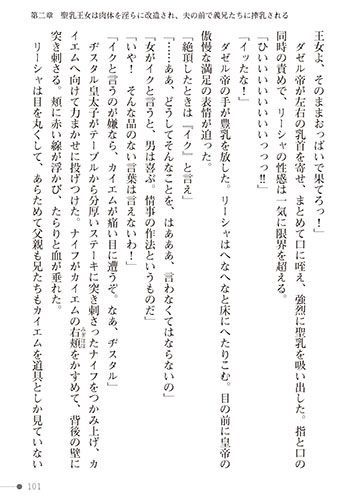 第二章 聖乳王女は肉体を淫らに改造され、夫の前で義兄たちに搾乳される
王女よ、そのままおっぱいで果てろっ！」
ダゼル帝が左右の乳首を寄せ、まとめて口に咥え、強烈に聖乳を吸い出した。指と口の
同時の責めで、リーシャの性感は一気に限界を超える。
「ひいいいいいいいいっっっ‼」
「イッたな！」
ダゼル帝の手が豊乳を放した。リーシャはへなへなと床にへたりこむ。目の前に皇帝の
傲慢な満足の表情が迫った。
「絶頂したときは『イク』と言え」
「……ああ、どうしてそんなことを、はあああ、言わなくてはならないの」
「女がイクと言うと、男は喜ぶ。情事の作法というものだ」
「いや！ そんな品のない言葉は言えないわ！」
「イクと言うのが嫌なら、カイエムが痛い目に遭うぞ。なあ、ヂスタル」
ヂスタル皇太子がテーブルから分厚いステーキに突き刺さったナイフをつかみ上げ、カ
イエムへ向けて力まかせに投げつけた。ナイフがカイエムの右頬をかすめて、背後の壁に
突き刺さる。頬に赤い線が浮かび、たらりと血が垂れた。
リーシャは目を丸くして、あらためて父親も兄たちもカイエムを道具としか見ていない
101